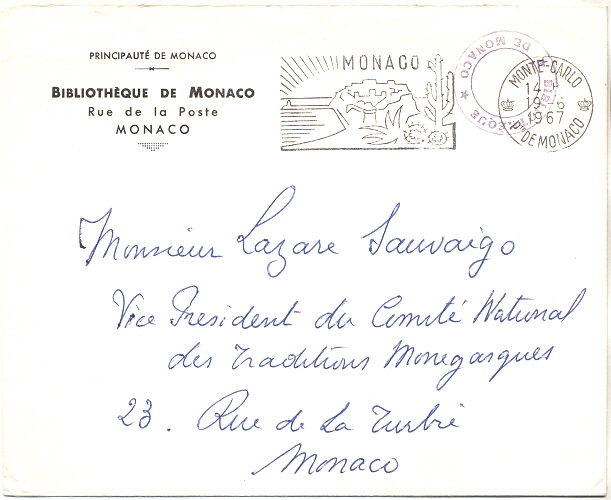 PRINCIPAUTÉ DE MONACO
BIBLIOTHÈQUE DE MONACO
Rue de la Poste
MONACO
MONACO
DE MONACO
MONTE-CARLO
14
19-6
1967
Pté DE MONACO
Monsieur Lazare Sauvaigo
Vice President du Comité National
des Traditions Monegasques
23. Rue de La Turbie
Monaco